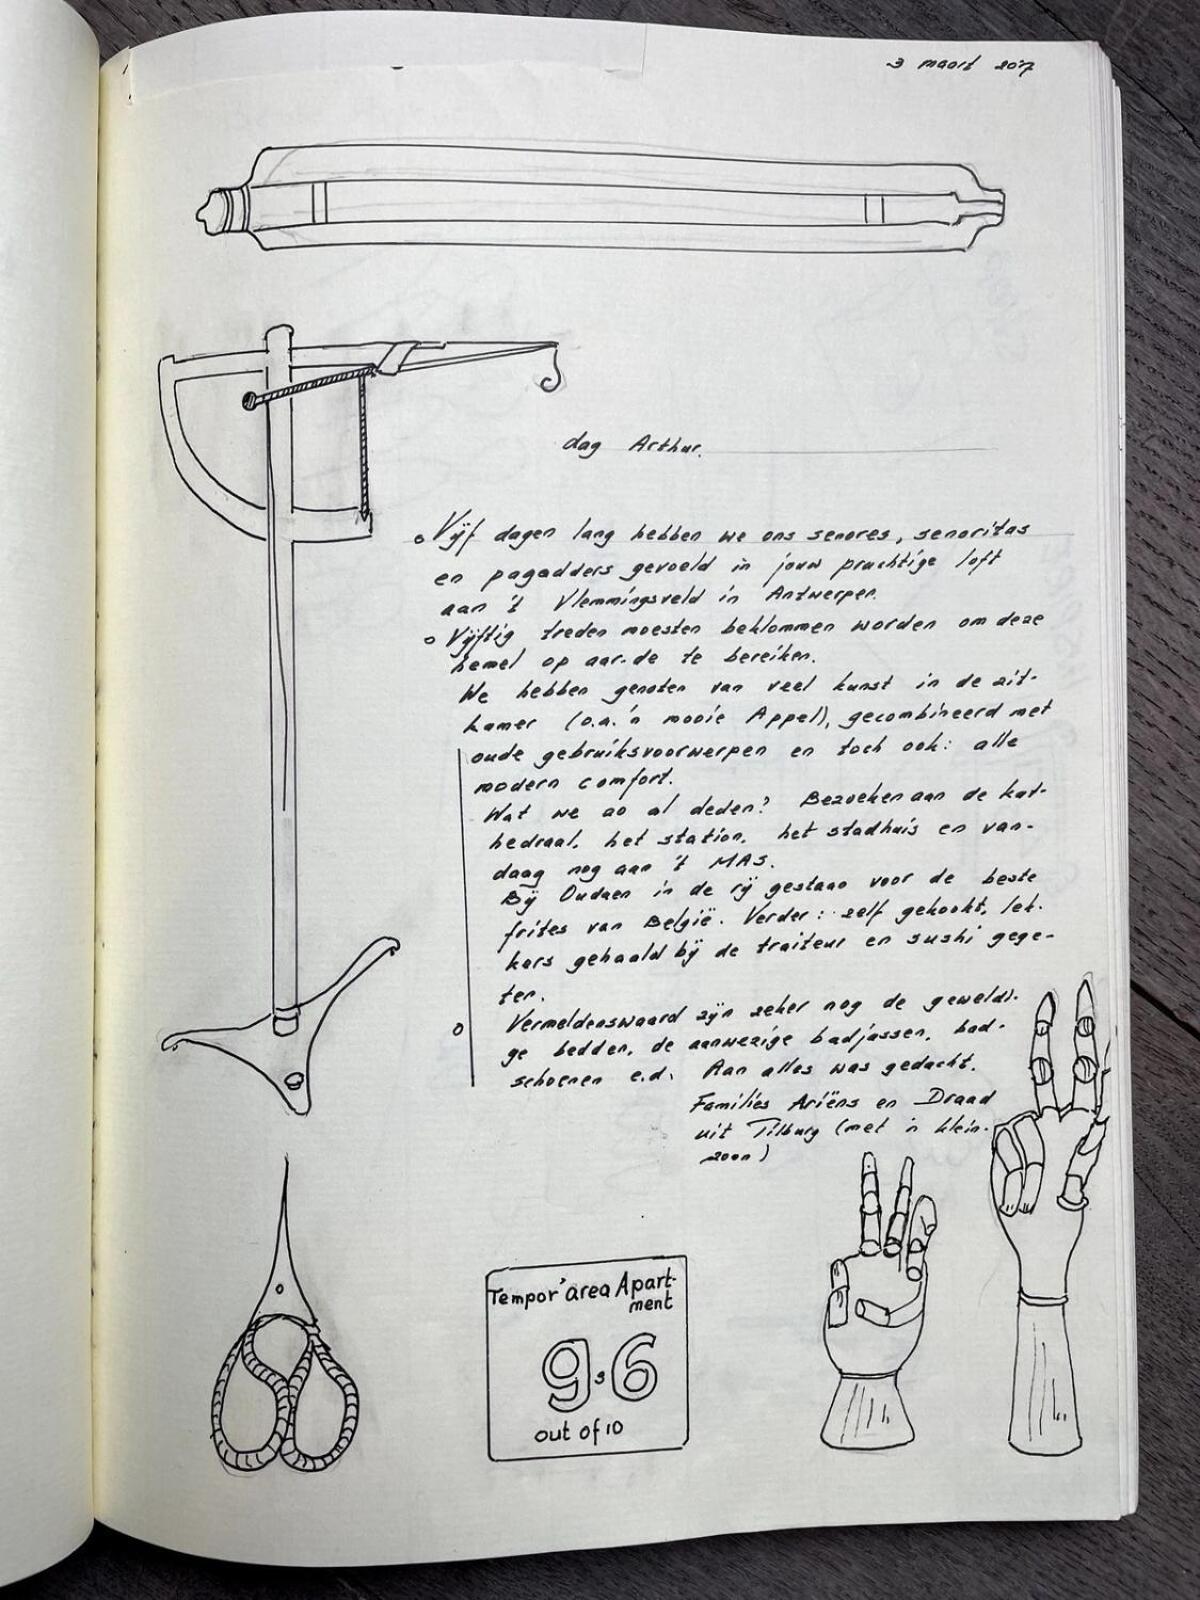 3 maart 2017
dag Arthur.
Vijf dagen lang hebben we ons senores, senoritas
en pagadders gevoeld in jouw prachtige loft
aan 't Vlemmingsveld in Antwerpen.
Vijftig treden moesten beklommen worden om deze
hemel op aar-de te bereiken.
We hebben genoten van veel kunst in de zit-
kamer (o.a. 'n mooie Appel), gecombineerd met
oude gebruiksvoorwerpen en toch ook: alle
modern comfort.
Wat we zo al deden? Bezoeken aan de kat-
hedraal, het station, het stadhuis en van-
daag nog aan 't MAS.
Bij Oudaen in de rij gestaan voor de beste
frites van België. Verder: zelf gekookt, lek-
kers gehaald bij de traiteur en sushi gege-
ten.
Vermeldenswaard zijn zeker nog de geweldi-
ge bedden, de aanwezige badjassen, bad-
schoenen e.d. Aan alles was gedacht.
Families Ariëns en Draad
uit Tilburg (met 'n klein-
zoon)
Tempor'area Apart-
ment
9.6
out of 10